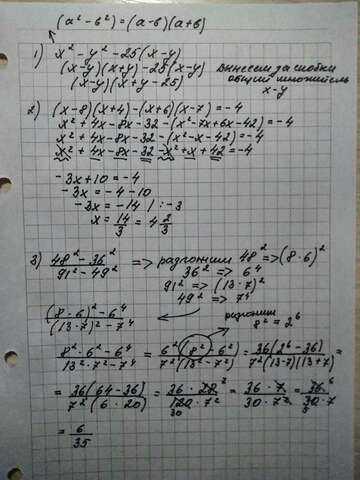 (a² - b²) = (a-b)(a+b)
1) x² - y² - 25(x-y)
(x-y)(x+y) - 25(x-y)
(x-y)(x+y-25)
Вынесем за скобки
общий множитель
x-y
2) (x-8)(x+4) - (x+6)(x-7) = -4
x² + 4x - 8x - 32 - (x² - 7x + 6x - 42) = -4
x² + 4x - 8x - 32 - (x² - x - 42) = -4
x² + 4x - 8x - 32 - x² + x + 42 = -4
-3x + 10 = -4
-3x = -4 - 10
-3x = -14 | :-3
x = 14/3 = 4 2/3
3) (48² - 36²)/(91² - 49²) => разложим 48² => (8·6)²
36² => 6⁴
91² => (13·7)²
49² => 7⁴
((8·6)² - 6⁴)/((13·7)² - 7⁴)
разложим
8² = 2⁶
(8²·6² - 6⁴)/(13²·7² - 7⁴) = 6²(8² - 6²)/7²(13² - 7²) = 36(2⁶ - 36)/7²(13-7)(13+7) =
= 36(64-36)/7²(6·20) = 36·28/120·7² 30 = 36·7/30·7² = 36 6/30·7 5
= 6/35